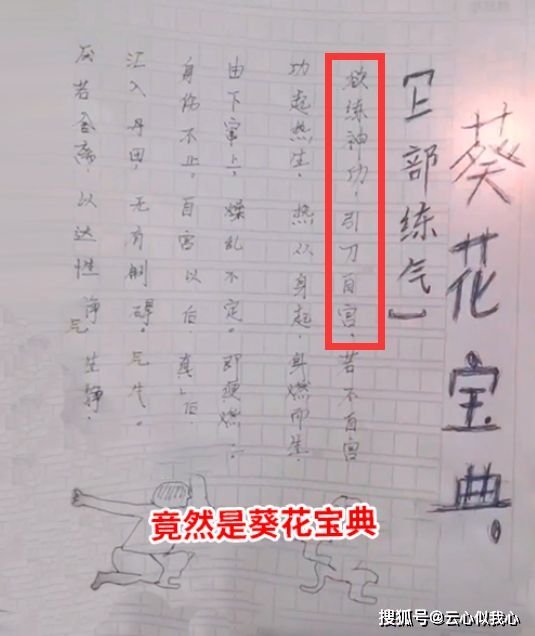 葵花宝典
【上部练气】
欲练神功，引刀自宫，若不自宫
功起热生，热从身起，身燃而生，
由下窜上，燥乱不定。即便燃
身伤不止。自宫以后，真
汇入丹田，无有制碍。气生。
若 斋，以达性净，气生静，
竟然是葵花宝典
搜狐号@云心似我心